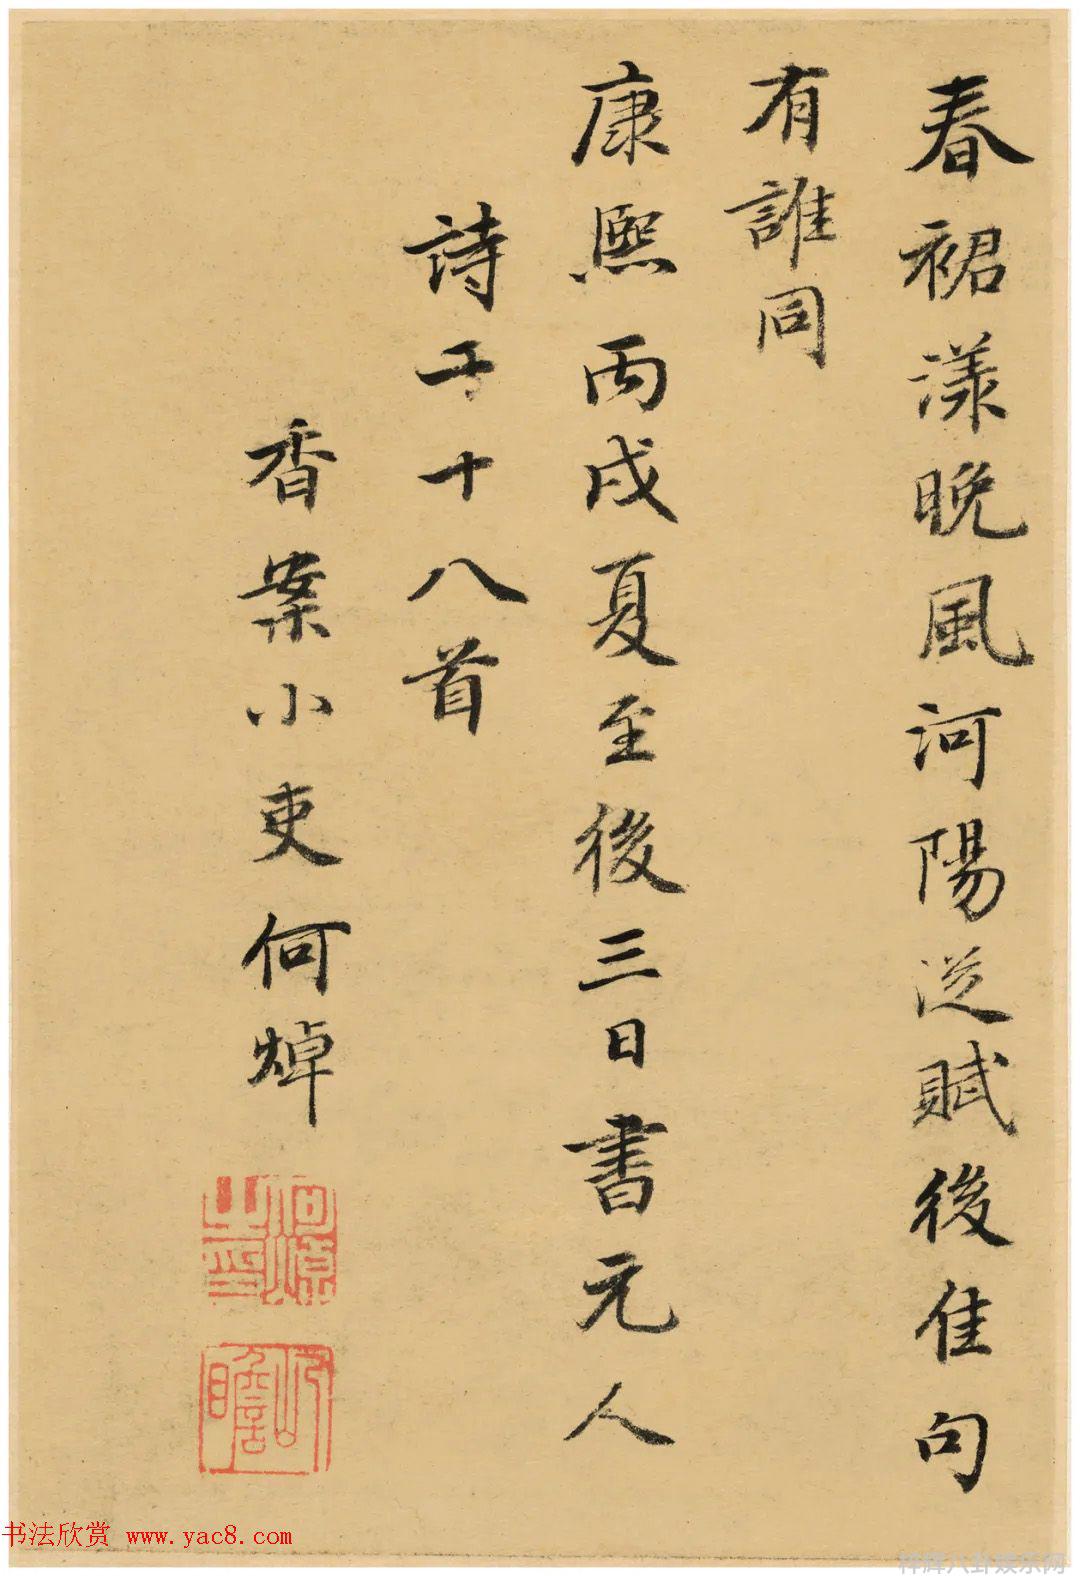 春裙漾晚風河陽從賦後佳句
有誰同
康熙丙戌夏至後三日書元人
詩于十八首
香案小吏何焯
何焯之印
屺瞻
书法欣赏 www.yac8.com